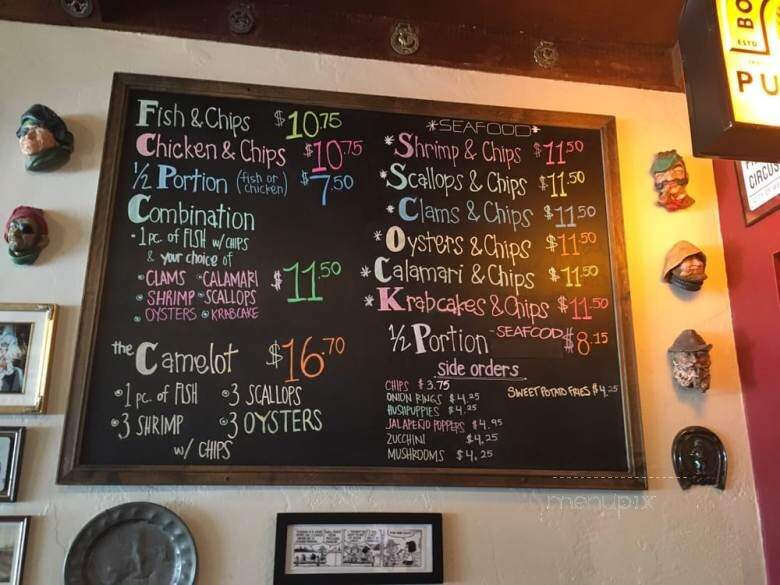 Fish & Chips $10.75
Chicken & Chips $10.75
1/2 Portion (fish or chicken) $7.50
Combination
• 1 pc. of FISH w/ CHIPS
& your choice of
• CLAMS • CALAMARI
• SHRIMP • SCALLOPS
• OYSTERS • KRABCAKE
$11.50
the Camelot $16.70
• 1 pc. of FISH • 3 SCALLOPS
• 3 SHRIMP • 3 OYSTERS
w/ CHIPS
*SEAFOOD*
*Shrimp & Chips $11.50
*Scallops & Chips $11.50
*Clams & Chips $11.50
*Oysters & Chips $11.50
*Calamari & Chips $11.50
*Krabcakes & Chips $11.50
1/2 Portion - SEAFOOD $8.15
side orders
CHIPS $3.75
ONION RINGS $4.25
HUSHPUPPIES $4.25
JALAPEÑO POPPERS $4.95
ZUCCHINI $4.25
MUSHROOMS $4.25
SWEET POTATO FRIES $4.25
BO
ESTD
PU
CIRCUS
menupix